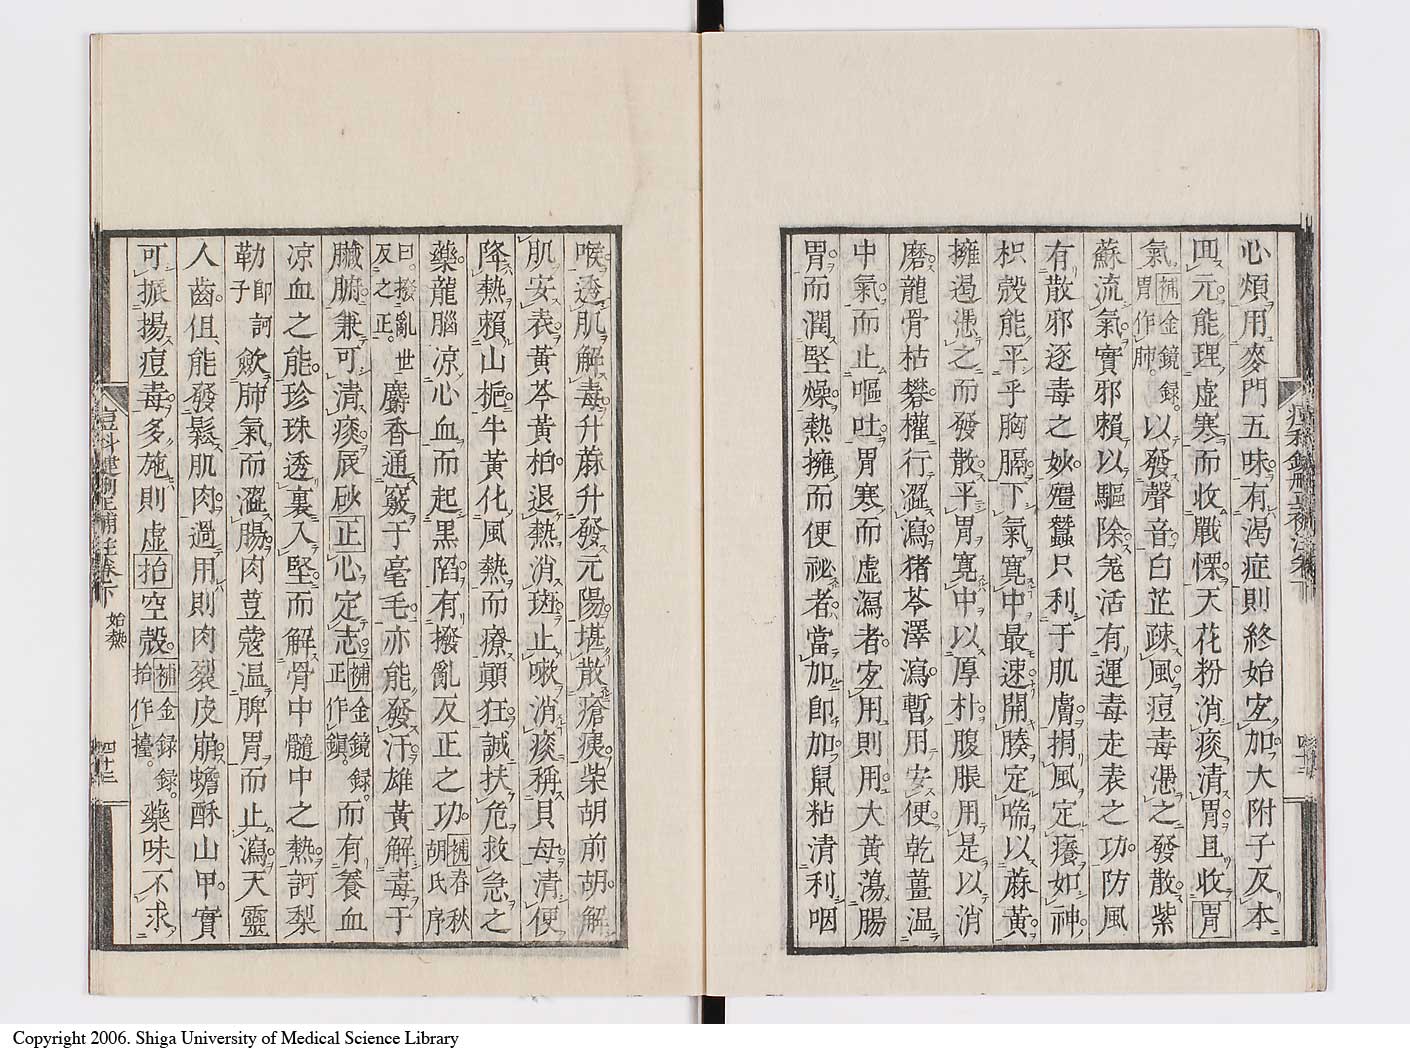 心煩用麥門五味有渴症則終始宜加大附子反本
回元能理虛寒而收戰慄天花粉消痰清胃且收胃
氣補金鏡録。胃作肺。以發聲音白芷疎風痘毒慿之發散紫
蘇流氣實邪賴以驅除羗活有運毒走表之功防風
有散邪逐毒之妙殭蠶只利于肌膚捐風定癢如神
枳殼能平乎胸膈下氣寬中最速開腠定喘以麻黃
擁遏慿之而發散平胃寬中以厚朴腹脹用是以消
磨龍骨枯礬權行澀瀉猪苓澤瀉暫用安便乾薑温
中氣而止嘔吐胃寒而虛瀉者宜用則用大黃蕩腸
胃而潤堅燥熱擁而便祕者當加即加鼠粘清利咽
喉透肌解毒升蔴升發元陽堪散瘡痍柴胡前胡解
肌安表黃芩黃柏退熱消斑止嗽消痰稱貝母清便
降熱賴山梔牛黃化風熱而療顛狂誠扶危救急之
藥龍腦凉心血而起黒陷有撥亂反正之功補春秋胡氏序
曰。撥亂世反之正。麝香通竅于毫毛亦能發汗雄黃解毒于
臟腑兼可清痰辰砂正心定志補金鏡録。正作鎭。而有養血
凉血之能珍珠透裏入堅而解骨中髓中之熱訶梨
勒即訶子斂肺氣而澀腸肉荳蔻温脾胃而止瀉天靈
人齒但能發鬆肌肉過用則肉裂皮崩蟾酥山甲實
可振揚痘毒多施則虛抬空殼補金録録。抬作擡。藥味不求
痘科鍵刪正補註卷下 始熱 四十三